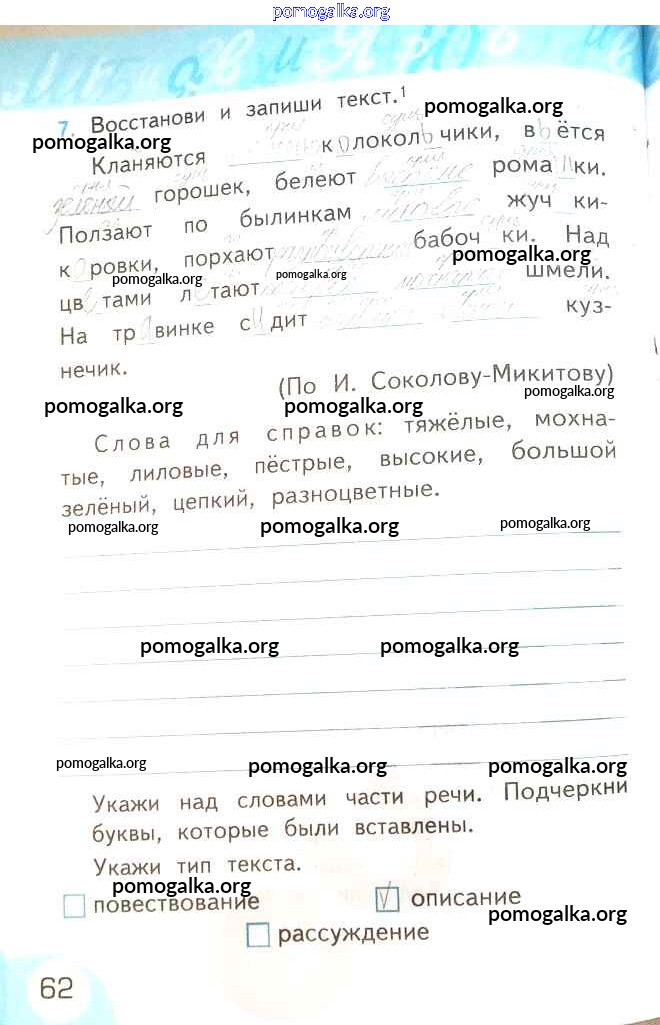 pomogalka.org
7. Восстанови и запиши текст.¹
pomogalka.org
pomogalka.org
Кланяются колокольчики, вьётся
зелёный горошек, белеют высокие ромашки.
Ползают по былинкам лиловые жуч ки-
pomogalka.org
коровки, порхают бабоч ки. Над
pomogalka.org
pomogalka.org
цветами летают мохнатые шмели.
На травинке сидит куз-
нечик.
(По И. Соколову-Микитову)
pomogalka.org
pomogalka.org
pomogalka.org
Слова для справок: тяжёлые, мохна-
тые, лиловые, пёстрые, высокие, большой
зелёный, цепкий, разноцветные.
pomogalka.org
pomogalka.org
pomogalka.org
pomogalka.org
pomogalka.org
pomogalka.org
pomogalka.org
pomogalka.org
Укажи над словами части речи. Подчеркни
буквы, которые были вставлены.
Укажи тип текста.
pomogalka.org
повествование
описание
pomogalka.org
рассуждение
62